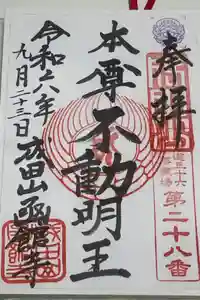 奉拝
第二十八番
本尊不動明王
令和六年
九月二十三日
成田山函館寺